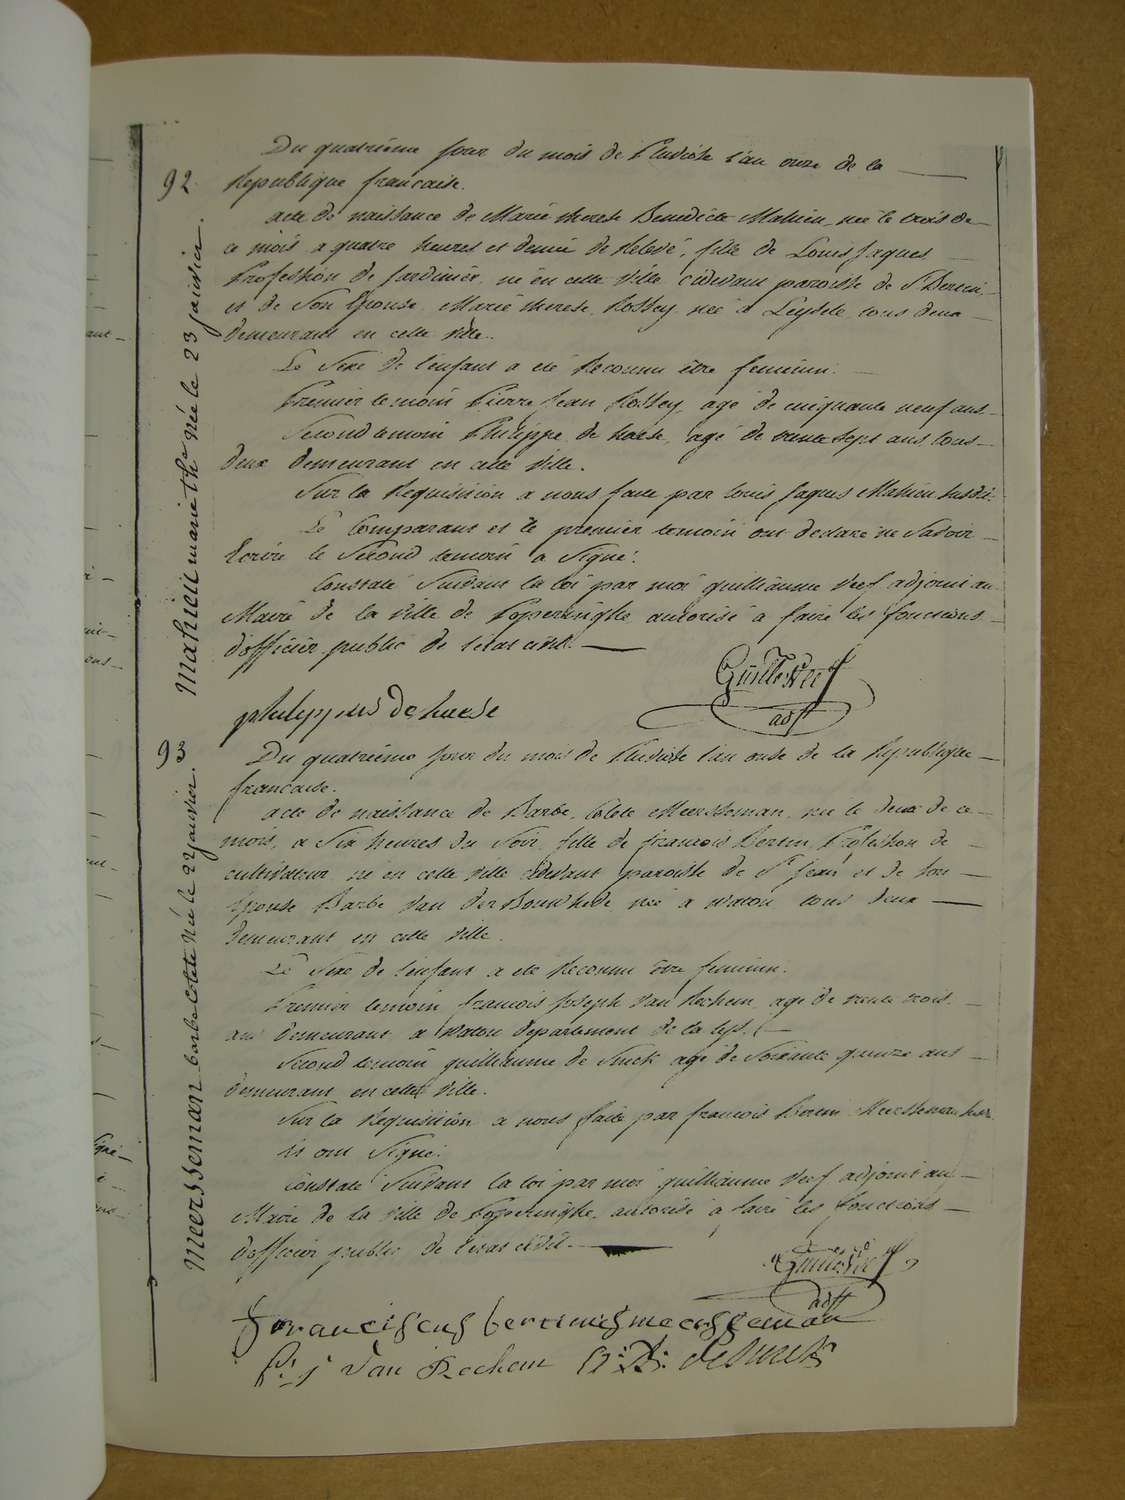 Du quatriême jour du mois de Pluviose l'an onze de la
92 Republique francaise.
acte de naissance de Marie therese Benedicte Mahieu, née le trois de
ce mois a quatre heures et demie de Relevé, fille de Louis Jaques
Profession de Jardinier, né en cette ville cidevant paroisse de St Bertin
et de Son Epouse Marie therese Rossey née à Leysele tous deux
demeurant en cette ville.
Le Sexe de l'enfant a été Reconnu être feminin.
Premier temoin Pierre Jean Rossey, agé de cinquante neuf ans
Second temoin Philippe de haese, agé de trente sept ans tous
deux demeurant en cette ville.
Sur la Requisition a nous faite par Louis Jaques Mahieu susdit
Le Comparant et le premier temoin ont declaré ne Savoir
Ecrire le Second temoin a Signé.
Constaté Suivant la loi par moi guilliaume Veef adjoint au
Maire de la ville de Poperinghe autorisé a faire les fonctions
d'officier public de l'etat civil.
Mahieu marie the née le 23 janvier.
Guille Veef
adjt
philippus de haese
93 Du quatriême jour du mois de Pluviose l'an onze de la Republique
francaise.
acte de naissance de Barbe Colete Meersseman, née le deux de ce
mois, a Six heures du Soir, fille de francois Bertin, Profession de
cultivateur né en cette ville cidevant paroisse de St Jean et de Son
Epouse Barbe Van der Bouwhede née a Watou tous deux
demeurant en cette ville.
Le Sexe de l'enfant a été Reconnu être feminin.
Premier temoin francois Joseph Van Rechem agé de trente trois
ans demeurant a Watou departement de la Lys.
Second temoin guilliaume de Smek agé de Soixante quinze ans
demeurant en cette ville.
Sur la Requisition a nous faite par francois Bertin Meersseman
ils ont Signé.
Constaté Suivant la loi par moi guilliaume Veef adjoint au
Maire de la ville de Poperinghe autorisé a faire les fonctions
d'officier public de l'etat civil.
Meersseman barbe colete née le 22 janvier.
Guille Veef
adjt
franciscus bertinus meersseman
f: j Van Rechem